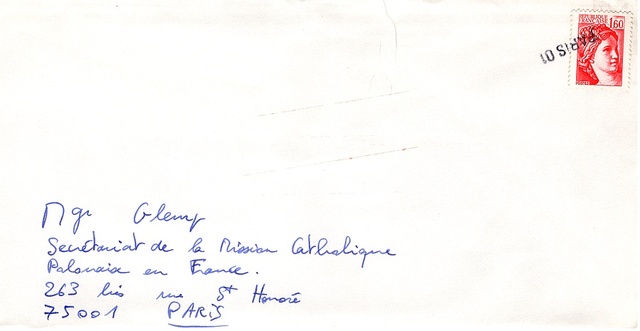 REPUBLIQUE FRANCAISE
1,60
PARIS 01
Mgr Glemp
Secrétariat de la Mission Catholique
Polonaise en France.
263 bis rue St Honoré
75001 PARIS